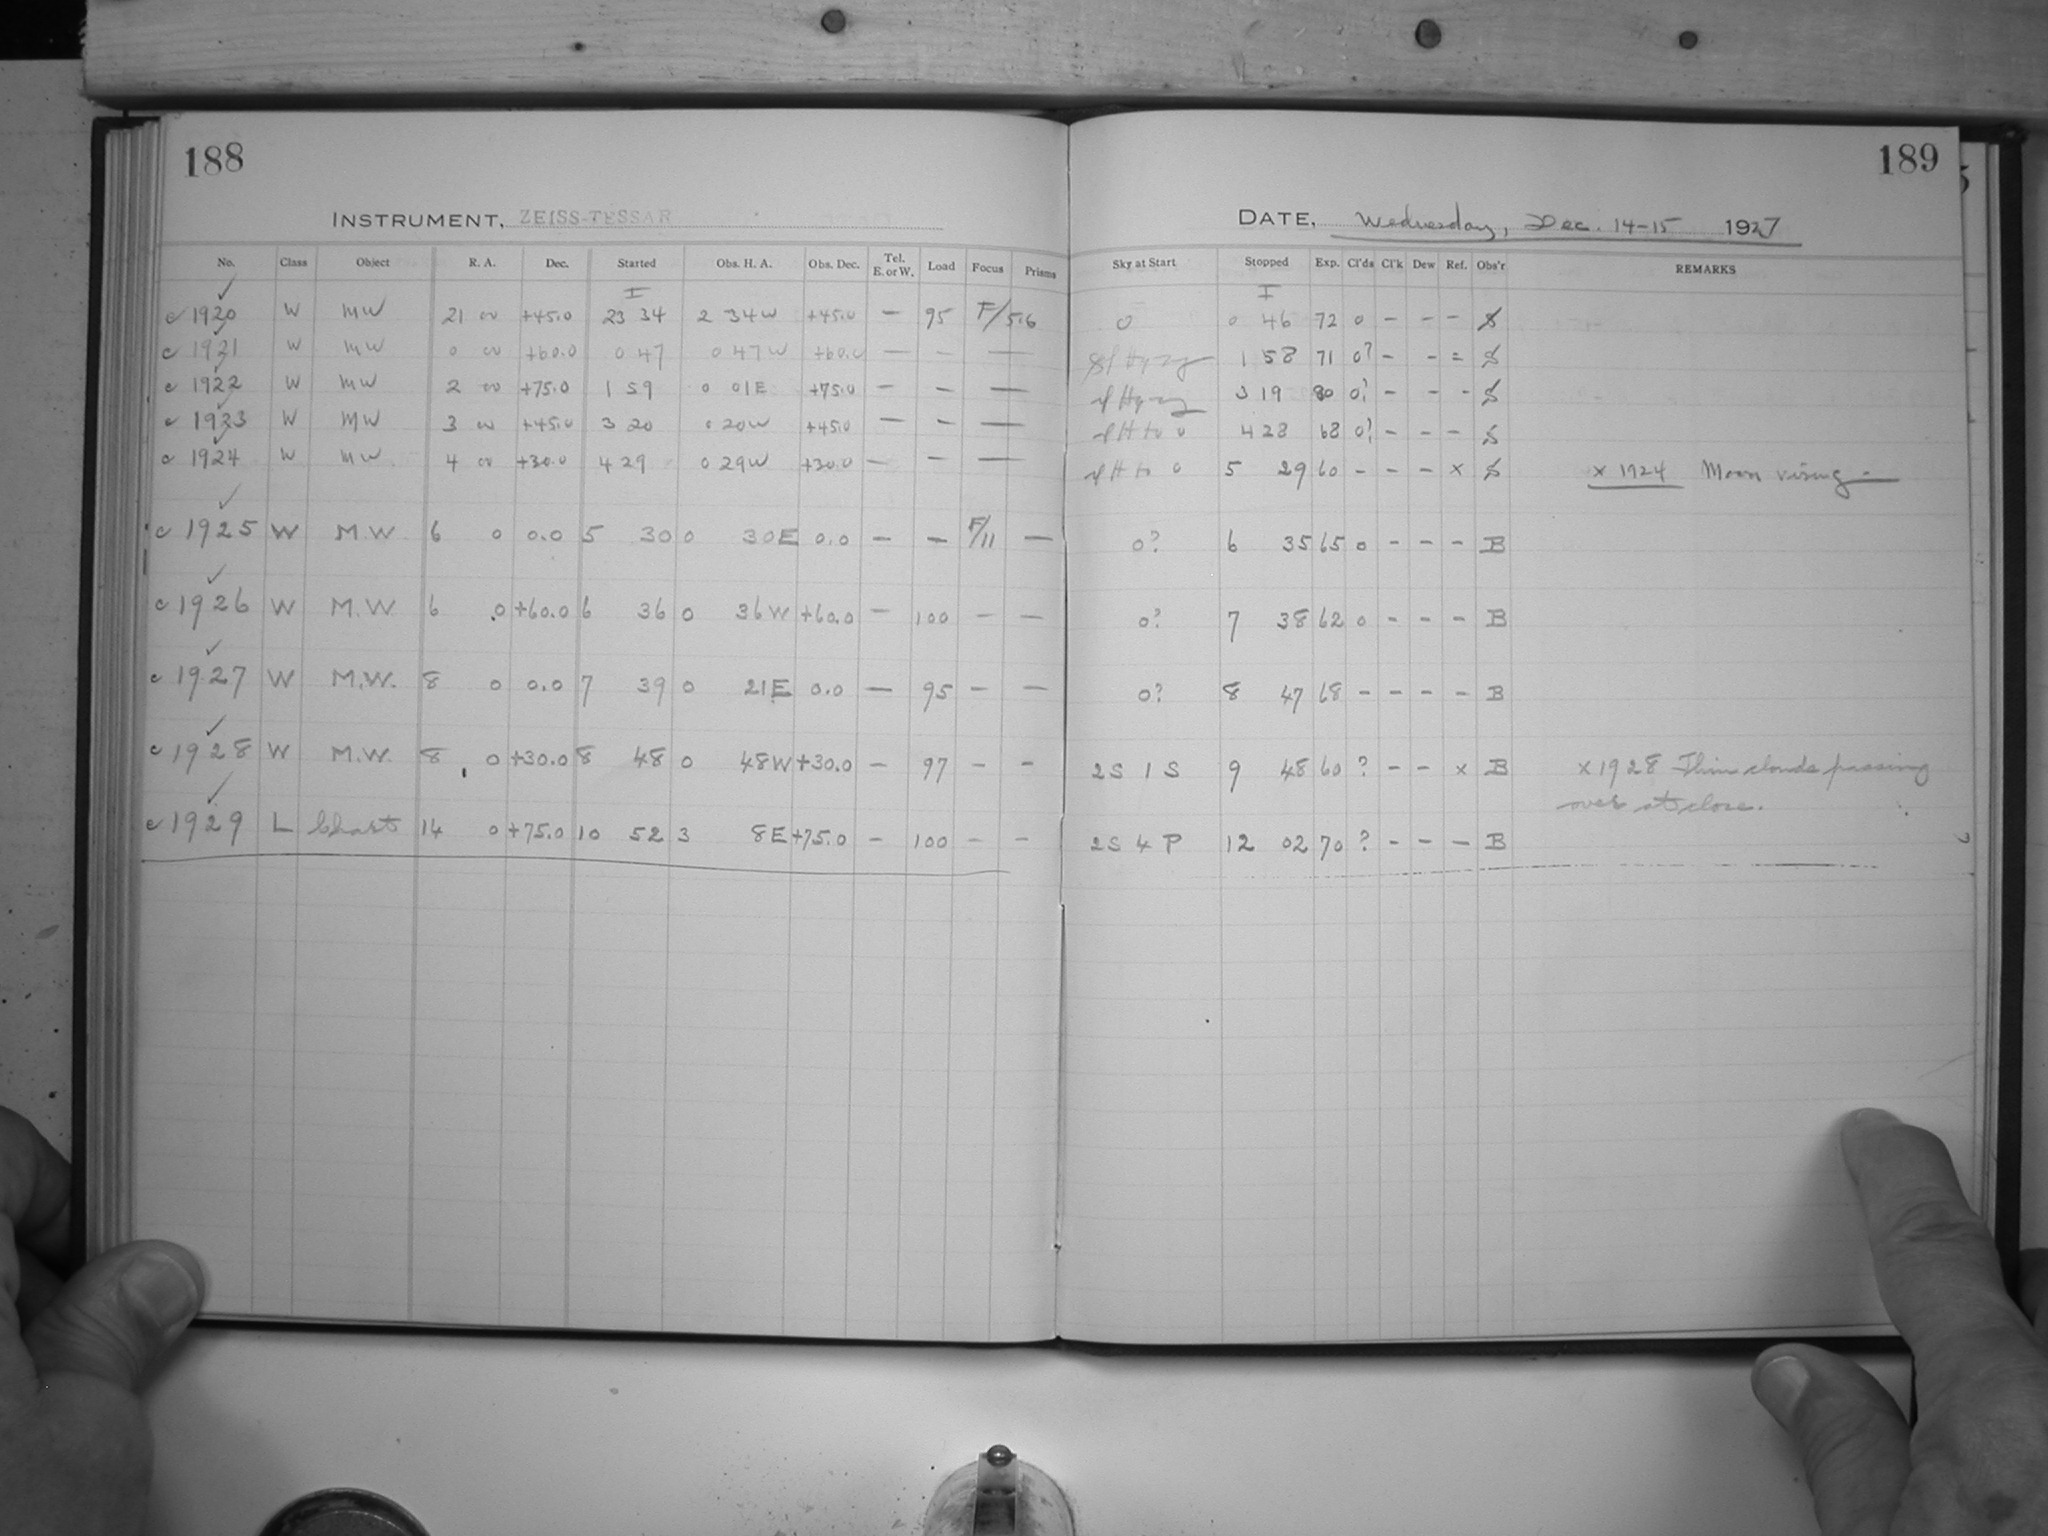 188
INSTRUMENT, ZEISS-TESSAR
No. Class Object R. A. Dec. Started Obs. H. A. Obs. Dec. Tel. E. or W. Load Focus Prisms
I
c 1920 W MW 21 00 +45.0 23 34 2 34W +45.0 — 95 F/5.6
c 1921 W MW 0 00 +60.0 0 47 0 47W +60.0 — - —
c 1922 W MW 2 00 +75.0 1 59 0 01E +75.0 — - —
c 1923 W MW 3 00 +45.0 3 20 0 20W +45.0 — - —
c 1924 W MW 4 00 +30.0 4 29 0 29W +30.0 — - —
c 1925 W M.W. 6 0 0.0 5 30 0 30E 0.0 — — F/11 —
c 1926 W M.W. 6 0 +60.0 6 36 0 36W +60.0 — 100 — —
c 1927 W M.W. 8 0 0.0 7 39 0 21E 0.0 — 95 — —
c 1928 W M.W. 8 0 +30.0 8 48 0 48W +30.0 — 97 — -
c 1929 L Chart 14 0 +75.0 10 52 3 8E +75.0 — 100 — -
189
DATE, Wednesday, Dec. 14-15 1927
Sky at Start Stopped Exp. Cl'ds Cl'k Dew Ref. Obs'r REMARKS
I
0 0 46 72 0 - - - S
1 58 71 0? - - = S
3 19 80 0? - - - S
H to 0 4 28 68 0? - - - S
H to 0 5 29 60 - - - x S x 1924 Moon rising —
0? 6 35 65 0 - - - B
0? 7 38 62 0 - - - B
0? 8 47 68 - - - - B
2S 1 S 9 48 60 ? - - x B x 1928 Thin clouds passing
over at close.
2S 4 P 12 02 70 ? - - — B